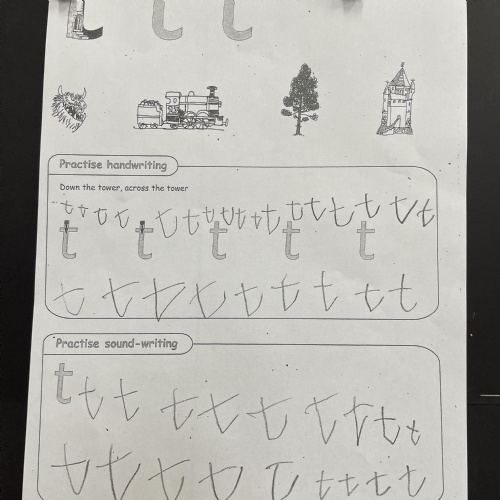 t t t
Practise handwriting
Down the tower, across the tower
t t t t t t t t t t t t t t t t t
t t t t t
t t t t t t t t t
Practise sound-writing
t t t t t t t t t t
t t t t t t t t t